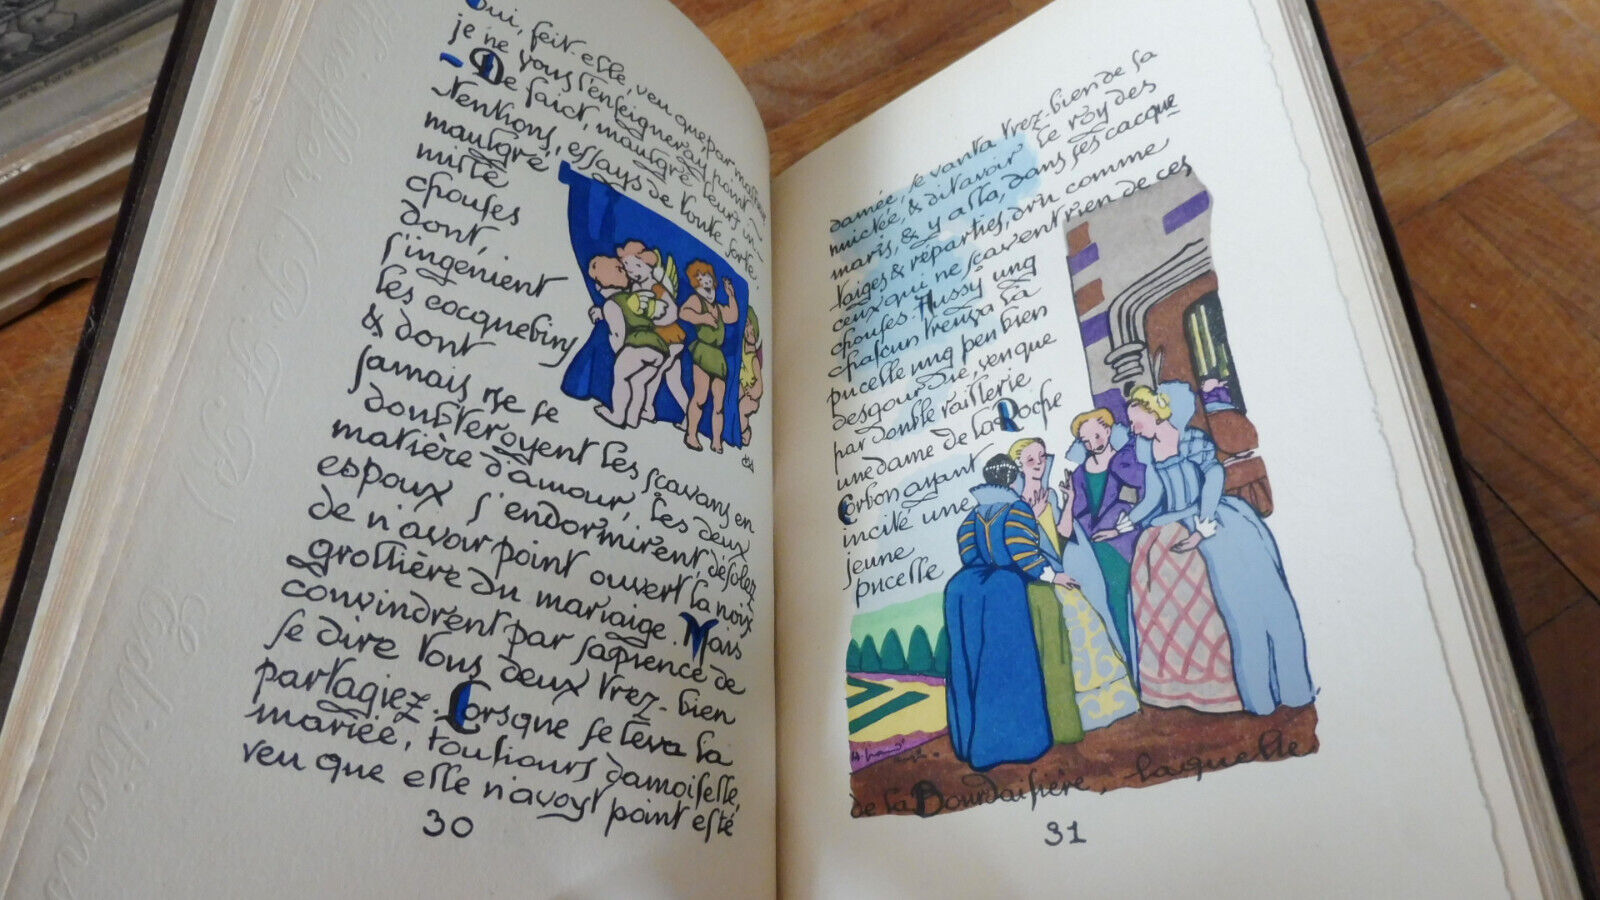 Oui, feit-elle, veu que, par
je ne vous l'enseigneray point
– De faict, maulgré leurs in-
tentions, essays de toute sorte,
maulgré
mille
chouses
dont,
s'ingénient
les cocquebins
& dont
jamais ne se
doubteroyent les sçavans en
matière d'amour, les deux
espoux s'endormirent, désolez
de n'avoir point ouvert la noix
grollière du mariaige. Mais
convindrent par sapience de
se dire tous deux trez-bien
partagiez. Lorsque se leva la
mariée, toutiours damoiselle,
veu que elle n'avoyt point esté
30
damée, se vanta trez-bien de sa
nuictée, & dit avoir le roy des
maris, & y alla, dans ses cacque
taiges & réparties, dru comme
ceux qui ne sçavent rien de ces
chouses. Aussy ung
chascun treuva la
pucelle ung peu bien
desgourdie, veu que
par double raillerie
une dame de la Roche
Corbon ayant
incité une
jeune
pucelle
de la Bourdaisière, laquelle
31
Editions